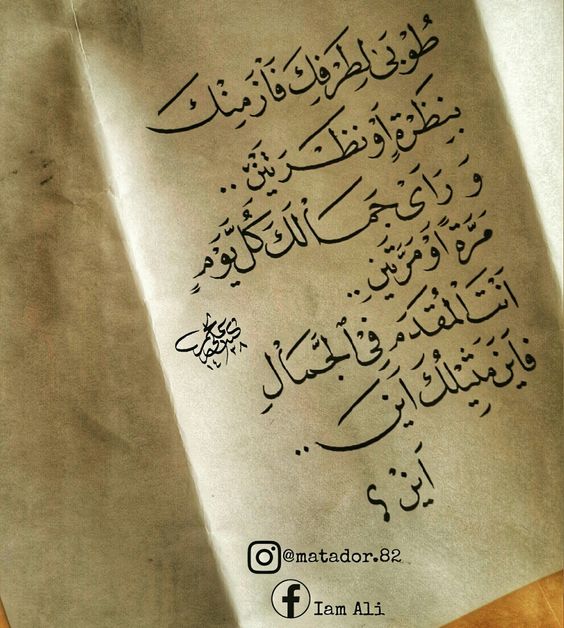 طُوْبَى لِطَرفِكَ فَاْزَ مِنْكَ
بِنَظْرَةٍ اَوْ نَظْرَتَيْنِ ..
وَ رَاَىْ جَمَاْلَكَ كُلَّ يَوْمٍ
مَرَّةً اَوْ مَرَّتَيْنِ ..
اَنْتَ الْمُقَدَمُ فِي الْجَمَالِ
فاَيْنَ مِثِيْلُكَ اَيْنَ ..
اَيْنْ ؟
١٤٣٨
@matador.82
Iam Ali